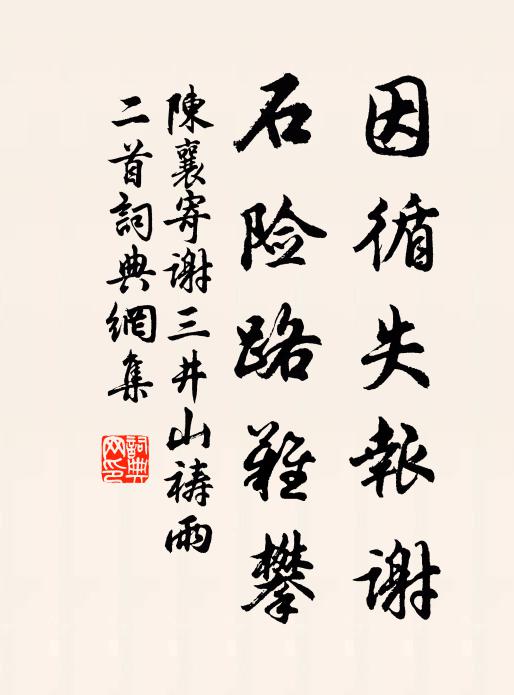 因循失報谢
石险路难攀
陳襄寄谢三井山祷雨
二首詞典網集
詞典网印